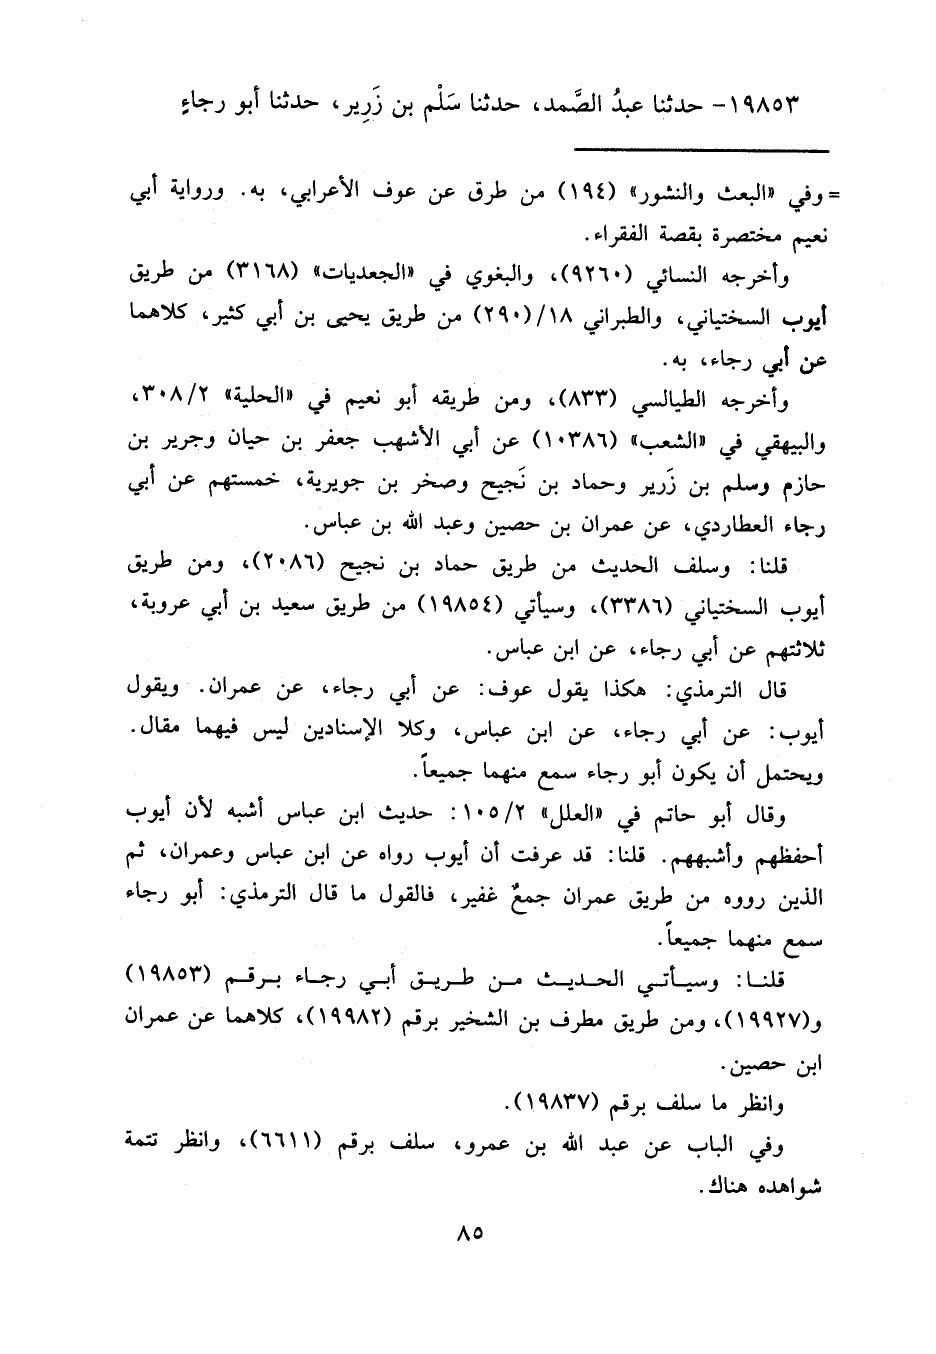 ١٩٨٥٣- حدثنا عبدُ الصَّمد، حدثنا سَلْم بن زَرِير، حدثنا أبو رجاءٍ
= وفي «البعث والنشور» (١٩٤) من طرق عن عوف الأعرابي، به. ورواية أبي
نعيم مختصرة بقصة الفقراء.
وأخرجه النسائي (٩٢٦٠)، والبغوي في «الجعديات» (٣١٦٨) من طريق
أيوب السختياني، والطبراني ١٨/(٢٩٠) من طريق يحيى بن أبي كثير، كلاهما
عن أبي رجاء، به.
وأخرجه الطيالسي (٨٣٣)، ومن طريقه أبو نعيم في «الحلية» ٣٠٨/٢،
والبيهقي في «الشعب» (١٠٣٨٦) عن أبي الأشهب جعفر بن حيان وجرير بن
حازم وسلم بن زَرير وحماد بن نَجيح وصخر بن جويرية، خمستهم عن أبي
رجاء العطاردي، عن عمران بن حصين وعبد الله بن عباس.
قلنا: وسلف الحديث من طريق حماد بن نجيح (٢٠٨٦)، ومن طريق
أيوب السختياني (٣٣٨٦)، وسيأتي (١٩٨٥٤) من طريق سعيد بن أبي عروبة،
ثلاثتهم عن أبي رجاء، عن ابن عباس.
قال الترمذي: هكذا يقول عوف: عن أبي رجاء، عن عمران. ويقول
أيوب: عن أبي رجاء، عن ابن عباس، وكلا الإسنادين ليس فيهما مقال.
ويحتمل أن يكون أبو رجاء سمع منهما جميعاً.
وقال أبو حاتم في «العلل» ١٠٥/٢: حديث ابن عباس أشبه لأن أيوب
أحفظهم وأشبههم. قلنا: قد عرفت أن أيوب رواه عن ابن عباس وعمران، ثم
الذين رووه من طريق عمران جمعٌ غفير، فالقول ما قال الترمذي: أبو رجاء
سمع منهما جميعاً.
قلنا: وسيأتي الحديث من طريق أبي رجاء برقم (١٩٨٥٣)
و(١٩٩٢٧)، ومن طريق مطرف بن الشخير برقم (١٩٩٨٢)، كلاهما عن عمران
ابن حصين.
وانظر ما سلف برقم (١٩٨٣٧).
وفي الباب عن عبد الله بن عمرو، سلف برقم (٦٦١١)، وانظر تتمة
شواهده هناك.
٨٥